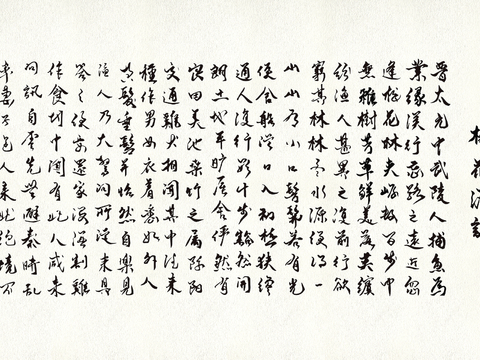 桃花源記
晋太元中武陵人捕魚為
業緣溪行忘路之遠近忽
逢桃花林夾岸數百步中
無雜樹芳草鮮美落英繽
紛漁人甚異之復前行欲
窮其林林盡水源便得一
山山有小口髣髴若有光
便舍船從口入初極狹纔
通人復行數十步豁然開
朗土地平曠屋舍儼然有
良田美池桑竹之屬阡陌
交通雞犬相聞其中往來
種作男女衣著悉如外人
黃髮垂髫并怡然自樂見
漁人乃大驚問所從來具
答之便要還家設酒殺雞
作食村中聞有此人咸來
問訊自云先世避秦時亂
率妻子邑人來此絕境不